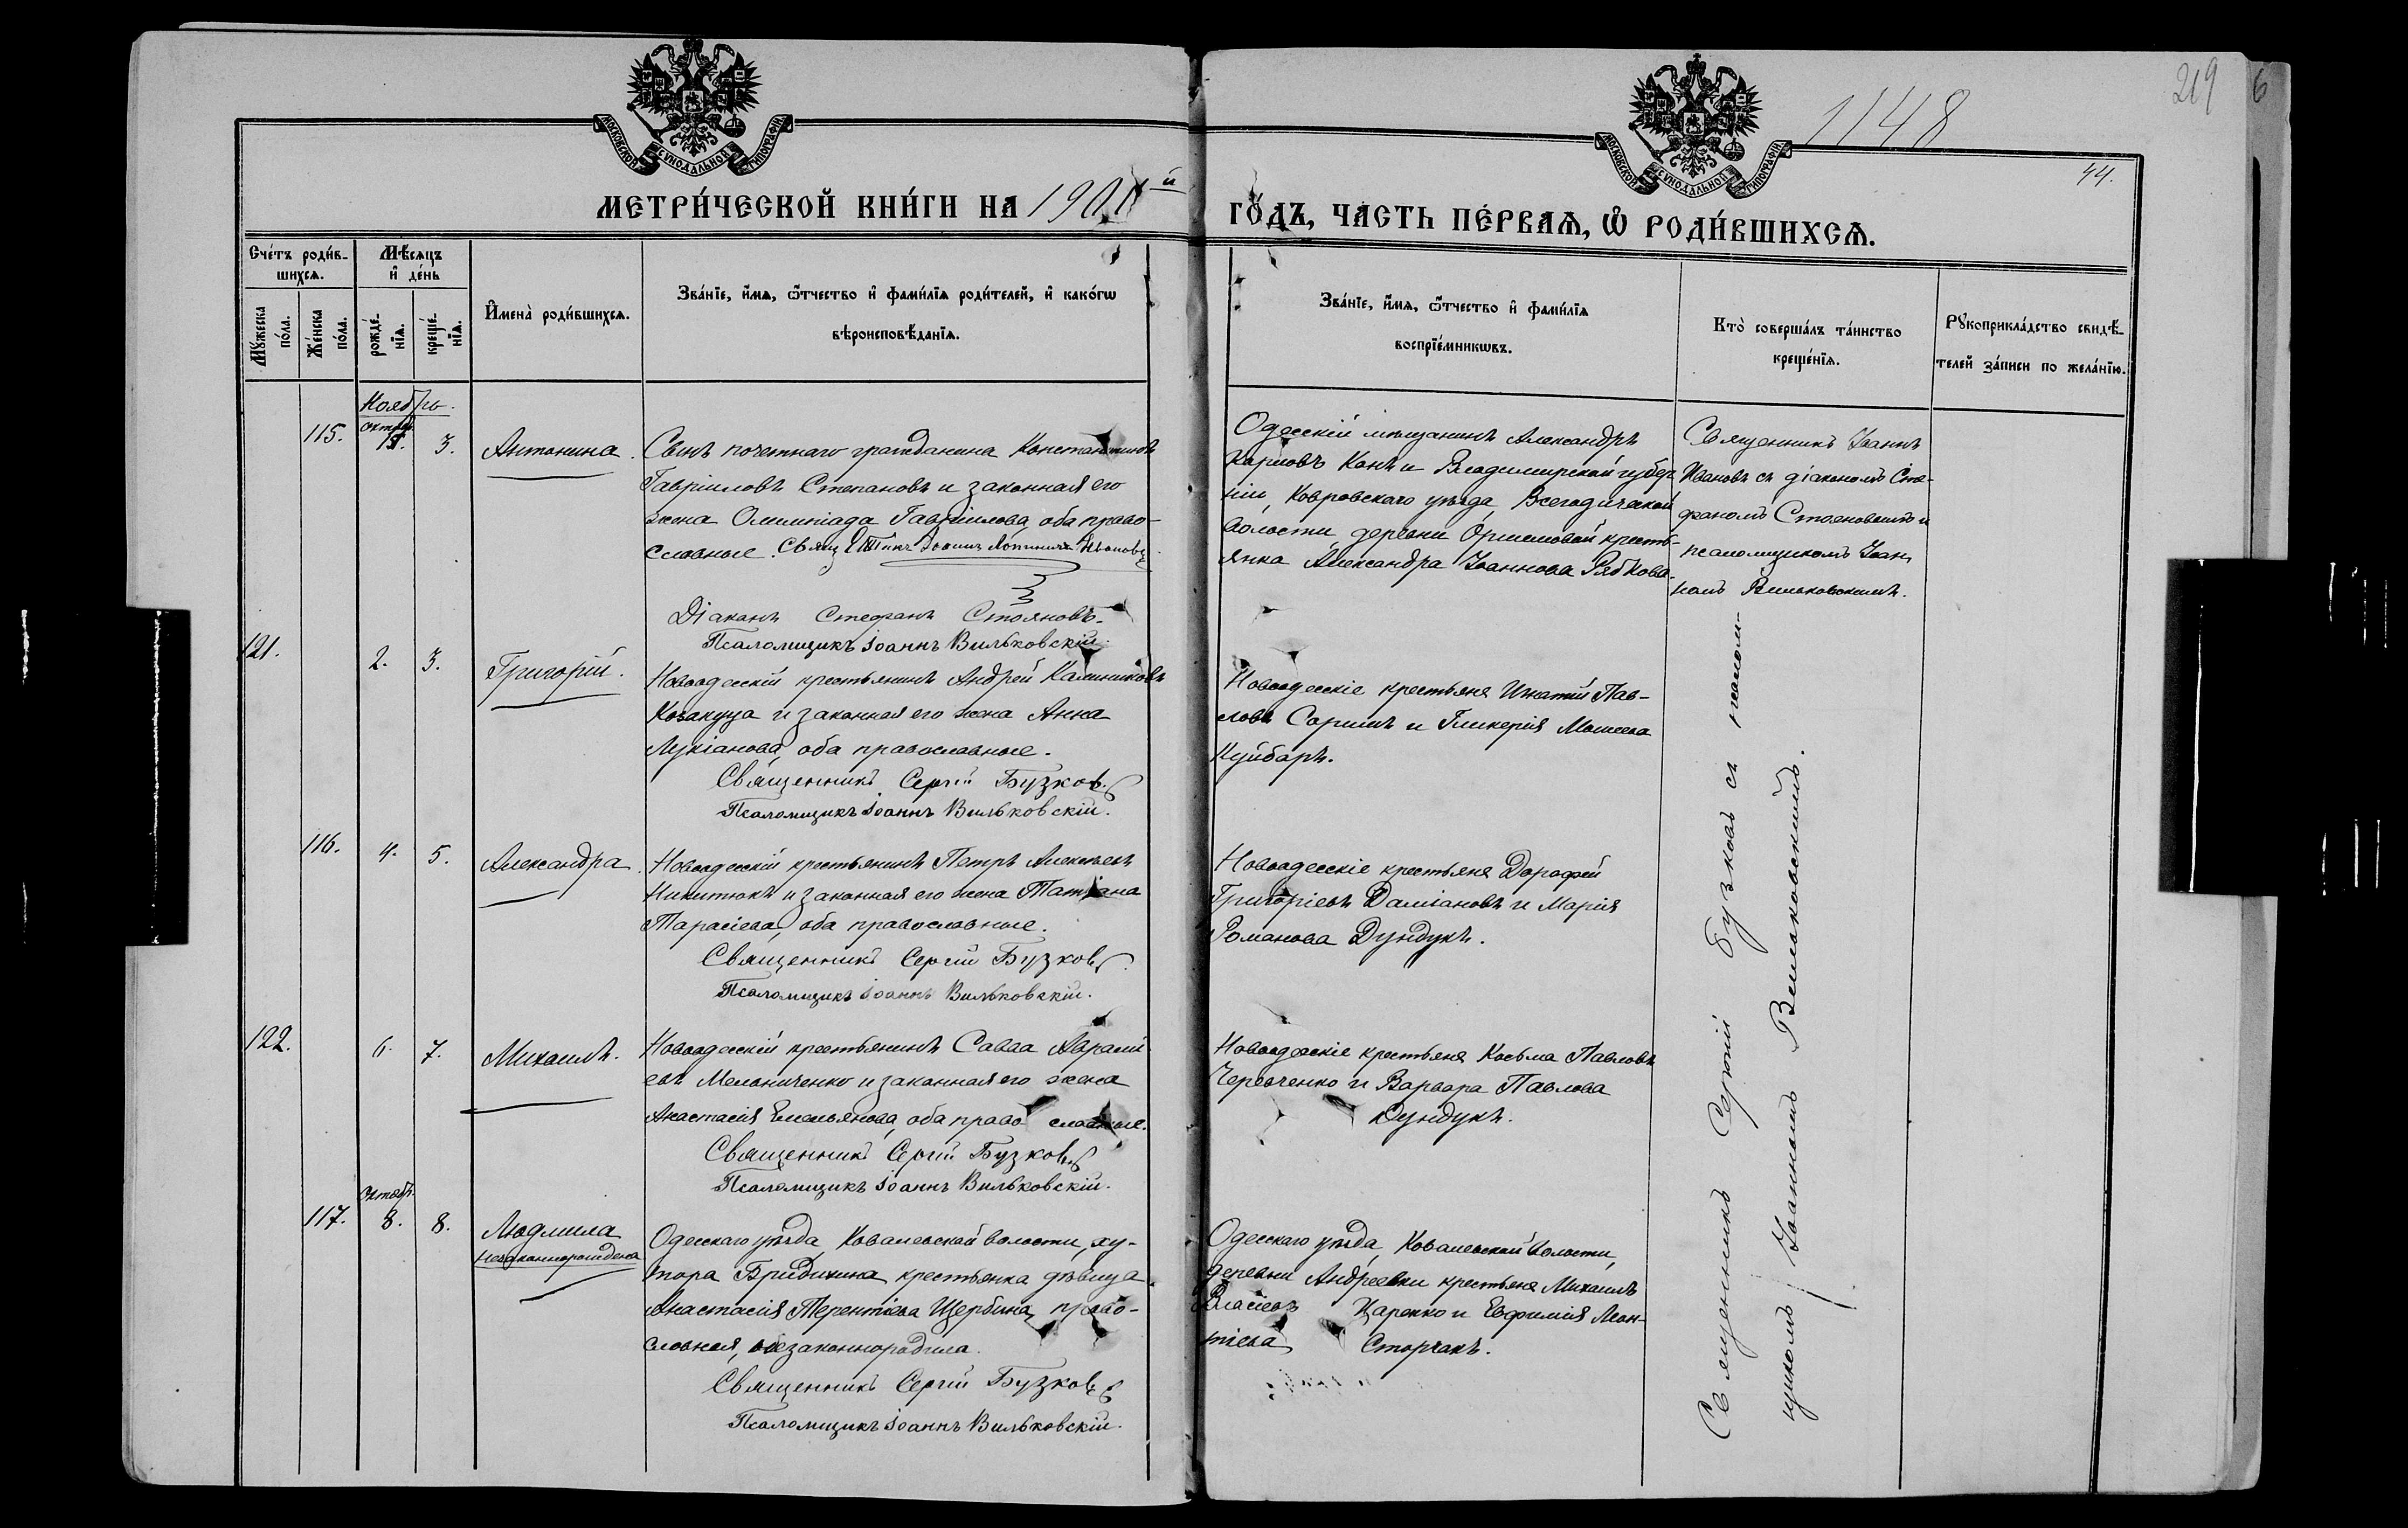 219
6
1148
44.
МОСКОВСКОЙ СѴНОДАЛЬНОЙ ТИПОГРАФІИ
МОСКОВСКОЙ СѴНОДАЛЬНОЙ ТИПОГРАФІИ
МЕТРИ́ЧЕСКОЙ КНИ́ГИ НА 190 й
ГО́ДЪ, ЧА́СТЬ ПЕ́РВАѦ, Ѡ҆ РОДИ́ВШИХСѦ.
Сче́тъ роди́в-
шихсѧ.
Мꙋ́жеска
по́ла.
Же́нска
по́ла.
Мѣ́сѧцъ
и҆ де́нь
рожде́-
нїѧ.
креще́-
нїѧ.
И҆мена̀ роди́вшихсѧ.
Зва́нїе, и҆́мѧ, ѻ҆́тчество и҆ фами́лїѧ роди́телей, и҆ како́гѡ
вѣроисповѣ́данїѧ.
Зва́нїе, и҆́мѧ, ѻ҆́тчество и҆ фами́лїѧ
воспрїе́мникѡвъ.
Кто̀ соверша́лъ та́инство
креще́нїѧ.
Рꙋкоприкла́дство свидѣ́-
телей за́писи по жела́нїю.
Ноябрь.
115.
3.
Антонина.
Сынъ почетнаго гражданина Константинъ
Гавріиловъ Степановъ и законная его
жена Олимпіада Гавріилова, оба право-
славные. Іоаннъ Ивановъ
Діаконъ Стефанъ Стояновъ.
Псаломщикъ Іоаннъ Вильковскій.
Одесскій мѣщанинъ Александръ
Карповъ Канъ и Владимирской губер-
ніи, Ковровскаго уѣзда, Всегодической
волости, деревни кресть-
янка Александра Іоаннова Рябкова.
Священникъ Іоаннъ
Ивановъ съ діакономъ Сте-
фаномъ Стояновымъ и
псаломщикомъ Іоан-
номъ Вильковскимъ.
121.
2. 3.
Григорій.
Новоодесскій крестьянинъ Андрей Калиниковъ
Козакуца и законная его жена Анна
Лукіанова, оба православные.
Священникъ Сергій Бузковъ
Псаломщикъ Іоаннъ Вильковскій.
Новоодесскіе крестьяне Игнатій Пав-
ловъ и Гликерія Моисеева
Куйбаръ.
116.
4. 5.
Александра.
Новоодесскій крестьянинъ Петръ Алексѣевъ
Никитюкъ и законная его жена Татіана
Тарасіева, оба православные.
Священникъ Сергій Бузковъ.
Псаломщикъ Іоаннъ Вильковскій.
Новоодесскіе крестьяне Дорофей
Григоріевъ Даміановъ и Марія
Романова Дундукъ.
122.
6. 7.
Михаилъ.
Новоодесскій крестьянинъ Савва
евъ Мельниченко и законная его жена
Анастасія Емельянова, оба православные.
Священникъ Сергій Бузковъ
Псаломщикъ Іоаннъ Вильковскій.
Новоодесскіе крестьяне Косьма Павловъ
Червченко и Варвара Павлова
Дундукъ.
117.
Октябр.
8. 8.
Людмила
незаконнорождена
Одесскаго уѣзда, Ковалевской волости, ху-
тора крестьянка дѣвица
Анастасія Терентіева Щербина, право-
славная, незаконнородила.
Священникъ Сергій Бузковъ
Псаломщикъ Іоаннъ Вильковскій.
Одесскаго уѣзда, Ковалевской волости,
деревни Андреевки крестьяне Михаилъ
Власіевъ Царенко и Евфимія Леон-
тіева Сторчакъ.
Священникъ Сергій Бузковъ съ псалом-
щикомъ Іоанномъ Вильковскимъ.